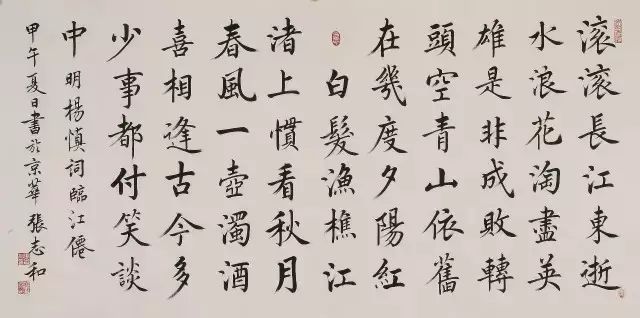 滚滚長江東逝
水浪花淘盡英
雄是非成敗轉
頭空青山依舊
在幾度夕陽紅
白髮漁樵江
渚上慣看秋月
春風一壺濁酒
喜相逢古今多
少事都付笑談
中 明楊慎詞臨江僊
甲午夏日書於京華 張志和